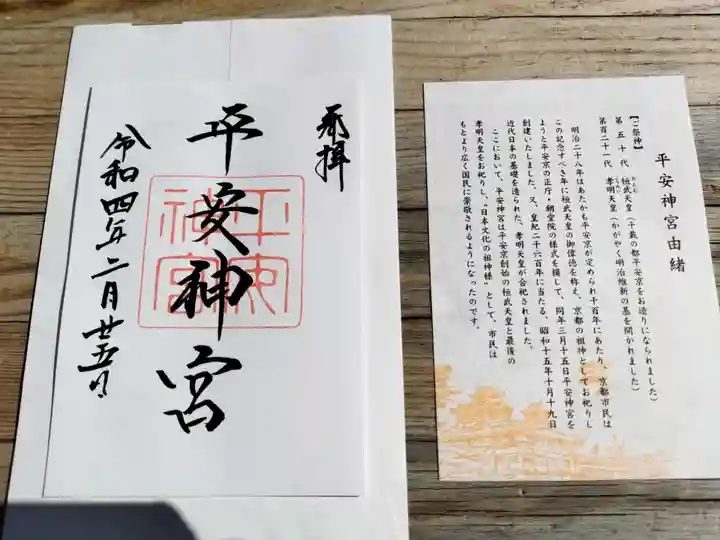 奉拝
平安神宮
平安神宮
令和四年二月廿五日
平安神宮由緒
【ご祭神】
第五十代 桓武天皇(千載の都平安京をお造りになられました)
かんむ
第百二十一代 孝明天皇(かがやく明治維新の基を開かれました)
こうめい
明治二十八年はあたかも平安京が定められ千百年にあたり、京都市民は
この記念すべき年に桓武天皇の御偉徳を称え、京都の祖神としてお祀りし
ようと平安京の正庁・朝堂院の様式を摸して、同年三月十五日平安神宮を
創建いたしました。又、皇紀二千六百年に当たる、昭和十五年十月十九日
近代日本の基礎を造られた、孝明天皇が合祀されました。
ここにおいて、平安神宮は平安京創始の桓武天皇と最後の
孝明天皇をお祀りし、"日本文化の祖神様"として、市民は
もとより広く国民に崇敬されるようになったのです。